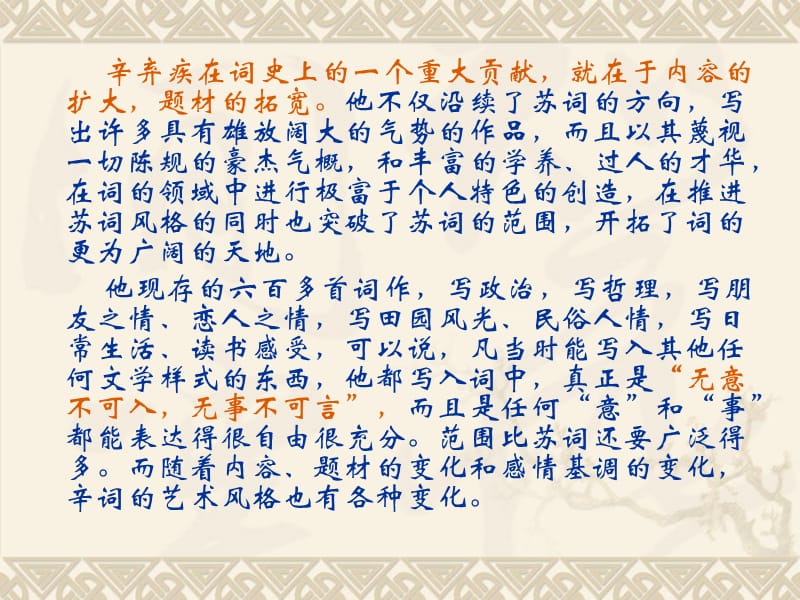 辛弃疾在词史上的一个重大贡献，就在于内容的
扩大，题材的拓宽。他不仅沿续了苏词的方向，写
出许多具有雄放阔大的气势的作品，而且以其蔑视
一切陈规的豪杰气概，和丰富的学养、过人的才华，
在词的领域中进行极富于个人特色的创造，在推进
苏词风格的同时也突破了苏词的范围，开拓了词的
更为广阔的天地。
他现存的六百多首词作，写政治，写哲理，写朋
友之情、恋人之情，写田园风光、民俗人情，写日
常生活、读书感受，可以说，凡当时能写入其他任
何文学样式的东西，他都写入词中，真正是“无意
不可入，无事不可言”，而且是任何“意”和“事”
都能表达得很自由很充分。范围比苏词还要广泛得
多。而随着内容、题材的变化和感情基调的变化，
辛词的艺术风格也有各种变化。